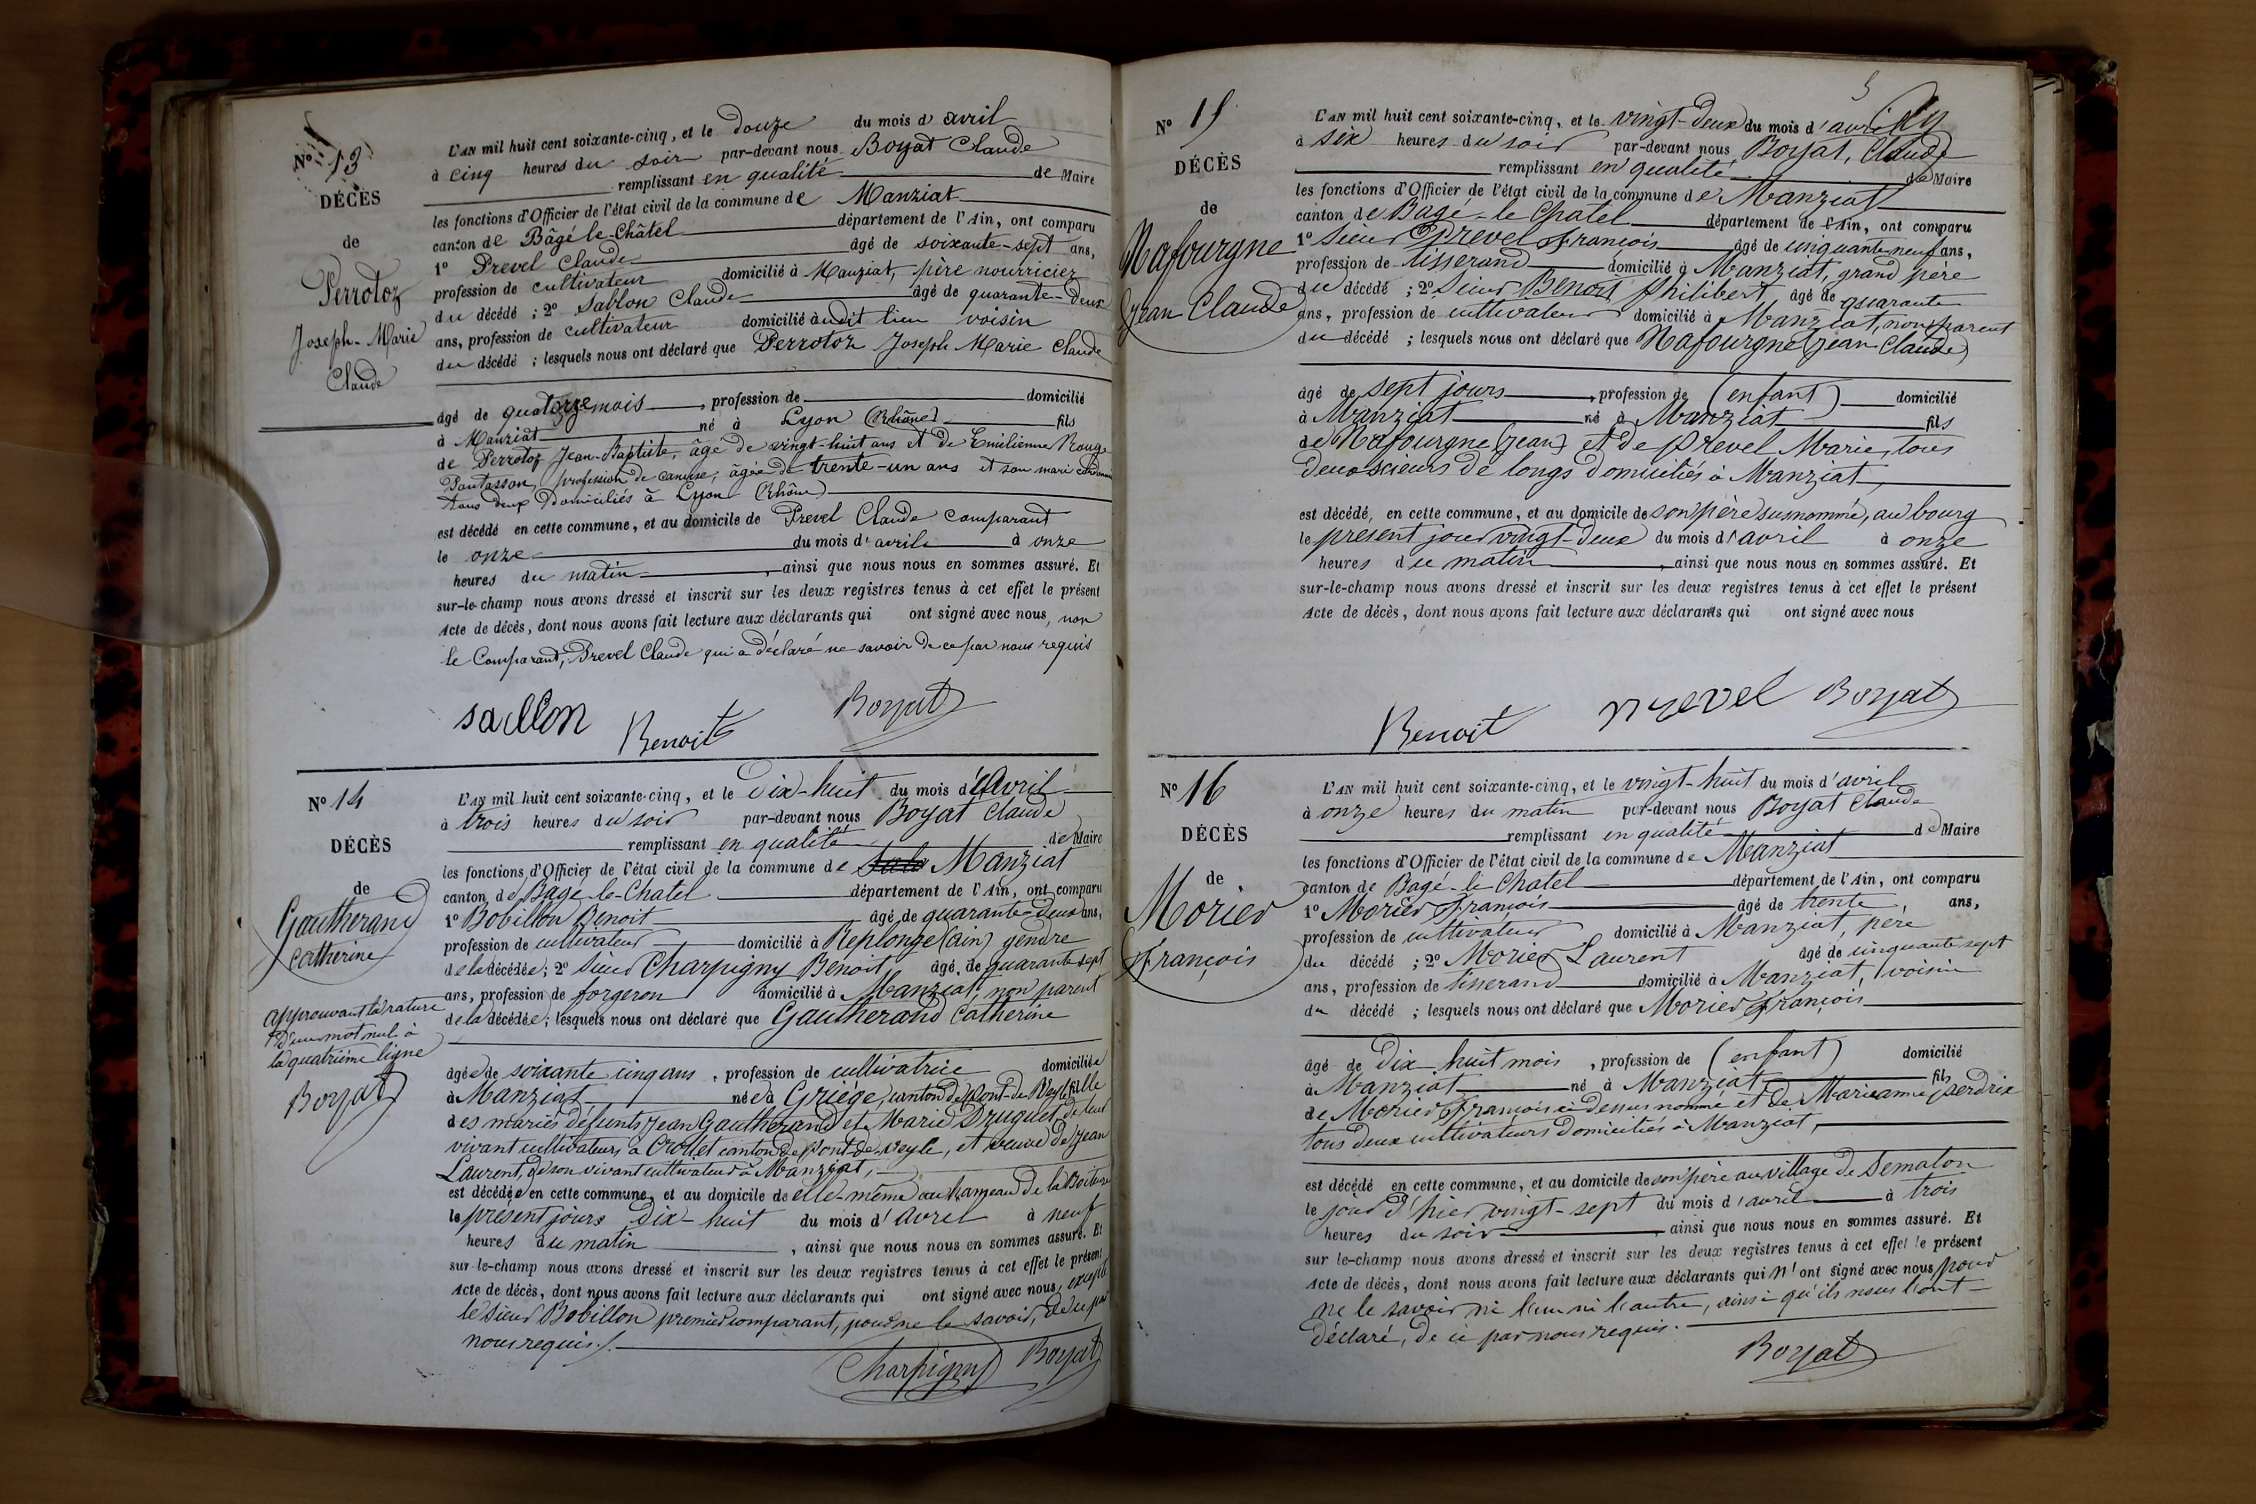 Nº 13
DÉCÈS
de
Perrotoz
Joseph-Marie
Claude
L'AN mil huit cent soixante-cinq, et le douze du mois d'avril
à cinq heures du soir par-devant nous Boyat Claude
remplissant en qualité de Maire
les fonctions d'Officier de l'état civil de la commune de Manziat
canton de Bâgé-le-Châtel département de l'Ain, ont comparu
1º Prevel Claude âgé de soixante-sept ans,
profession de cultivateur domicilié à Manziat, père nourricier
du décédé ; 2º Sablon Claude âgé de quarante-deux
ans, profession de cultivateur domicilié audit lieu voisin
du décédé ; lesquels nous ont déclaré que Perrotoz Joseph Marie Claude
âgé de quatorze mois, profession de domicilié
à Manziat né à Lyon (Rhône) fils
de Perrotoz Jean-Baptiste, âgé de vingt-huit ans et de Emilienne Rouge
profession de canuse, âgée de trente-un ans et son mari
tous deux domiciliés à Lyon (Rhône)
est décédé en cette commune, et au domicile de Prevel Claude comparant
le onze du mois d'avril à onze
heures du matin, ainsi que nous nous en sommes assuré. Et
sur-le-champ nous avons dressé et inscrit sur les deux registres tenus à cet effet le présent
Acte de décès, dont nous avons fait lecture aux déclarants qui ont signé avec nous, non
le Comparant, Prevel Claude qui a déclaré ne savoir de ce par nous requis
sablon Benoit Boyat
Nº 14
DÉCÈS
de
Gautherand
Catherine
approuvant la rature
d'un mot nul à
la quatrième ligne
Boyat
L'AN mil huit cent soixante-cinq, et le Dix-huit du mois d'Avril
à trois heures du soir par-devant nous Boyat Claude
remplissant en qualité de Maire
les fonctions d'Officier de l'état civil de la commune de Manziat
canton de Bagé-le-Chatel département de l'Ain, ont comparu
1º Bobillon Benoit âgé de quarante-deux ans,
profession de cultivateur domicilié à Replonge (ain) gendre
de la décédée ; 2º Sieur Charpigny Benoit âgé de quarante sept
ans, profession de forgeron domicilié à Manziat, non parent
de la décédée ; lesquels nous ont déclaré que Gautherand Catherine
âgée de soixante cinq ans, profession de cultivatrice domiciliée
à Manziat née à Griége, canton de Pont-de-Veyle fille
des mariés défunts Jean Gautherand et Marie Druguet de leur
vivant cultivateurs à Crottet canton de Pont-de-Veyle, et veuve de Jean
Laurent, de son vivant cultivateur à Manziat,
est décédée en cette commune, et au domicile de elle-même au hameau de la
le présent jours Dix-huit du mois d'Avril à neuf
heures du matin, ainsi que nous nous en sommes assuré. Et
sur-le-champ nous avons dressé et inscrit sur les deux registres tenus à cet effet le présent
Acte de décès, dont nous avons fait lecture aux déclarants qui ont signé avec nous, excepté
le sieur Bobillon premier comparant, pour ne le savoir, de ce par
nous requis.
Charpigny Boyat
Nº 15
DÉCÈS
de
Nafourgne
Jean Claude
L'AN mil huit cent soixante-cinq, et le vingt-deux du mois d'avril
à six heures du soir par-devant nous Boyat, Claude
remplissant en qualité de Maire
les fonctions d'Officier de l'état civil de la commune de Manziat
canton de Bagé-le Chatel département de l'Ain, ont comparu
1º Sieur Prevel François âgé de cinquante neuf ans,
profession de tisserand domicilié à Manziat, grand père
du décédé ; 2º Sieur Benoit Philibert âgé de quarante
ans, profession de cultivateur domicilié à Manziat, non parent
du décédé ; lesquels nous ont déclaré que Nafourgne (Jean Claude)
âgé de sept jours, profession de (enfant) domicilié
à Manziat né à Manziat fils
de Nafourgne (Jean) et de Prevel Marie, tous
deux scieurs de longs domiciliés à Manziat,
est décédé, en cette commune, et au domicile de son père susnommé, au bourg
le présent jour vingt-deux du mois d'avril à onze
heures du matin, ainsi que nous nous en sommes assuré. Et
sur-le-champ nous avons dressé et inscrit sur les deux registres tenus à cet effet le présent
Acte de décès, dont nous avons fait lecture aux déclarants qui ont signé avec nous
Benoit prevel Boyat
Nº 16
DÉCÈS
de
Morier
François
L'AN mil huit cent soixante-cinq, et le vingt-huit du mois d'avril
à onze heures du matin par-devant nous Boyat Claude
remplissant en qualité de Maire
les fonctions d'Officier de l'état civil de la commune de Manziat
canton de Bagé-le Chatel département de l'Ain, ont comparu
1º Morier François âgé de trente ans,
profession de cultivateur domicilié à Manziat, père
du décédé ; 2º Morier Laurent âgé de cinquante sept
ans, profession de tisserand domicilié à Manziat, voisin
du décédé ; lesquels nous ont déclaré que Morier François
âgé de Dix huit mois, profession de (enfant) domicilié
à Manziat né à Manziat fils
de Morier François ci-dessus nommé et de Marieanne Perdrix
tous deux cultivateurs domiciliés à Manziat,
est décédé en cette commune, et au domicile de son père au village de Semalon
le jour d'hier vingt-sept du mois d'avril à trois
heures du soir, ainsi que nous nous en sommes assuré. Et
sur le-champ nous avons dressé et inscrit sur les deux registres tenus à cet effet le présent
Acte de décès, dont nous avons fait lecture aux déclarants qui n'ont signé avec nous pour
ne le savoir ni l'un ni l'autre, ainsi qu'ils nous l'ont
déclaré, de ce par nous requis.
Boyat